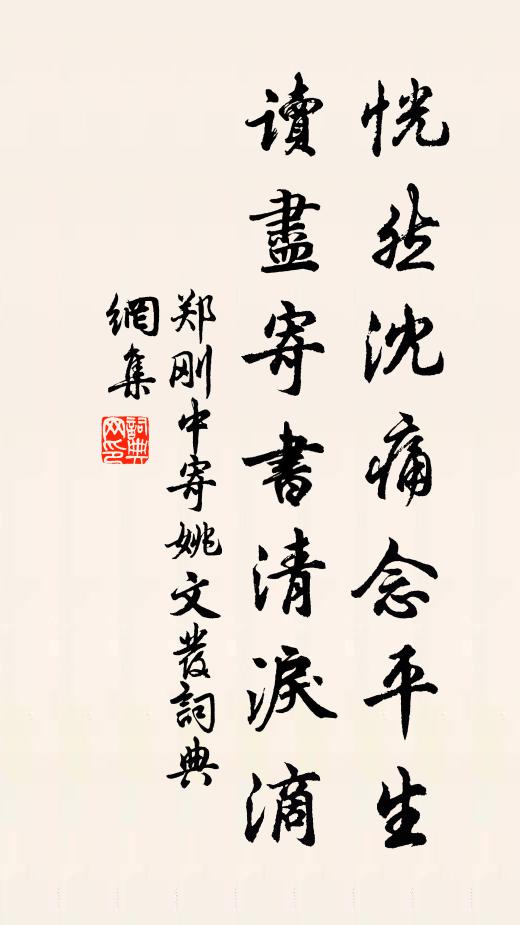 恍然沈痛念平生
讀盡寄書清淚滴
郑刚中寄姚文發詞典
網集
詞典
网印